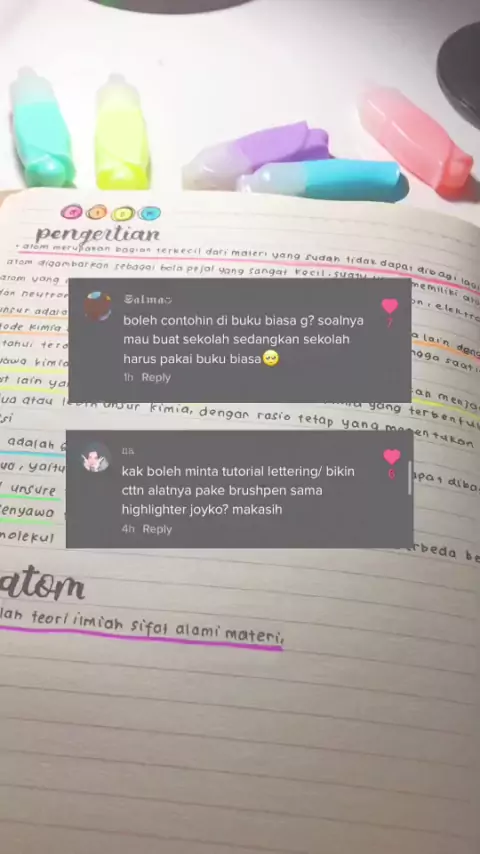 atom
pengertian
• atom merupakan bagian terkecil dari materi yang sudah tidak dapat dibagi lagi
atom digambarkan sebagai bola pejal yang sangat kecil. suatu
memiliki
atom yang
, elektro
dan neutron
unsur adala
a lain deng
kode kimia
ngga saat i
tahui
yawa kimia
at lain ya
an menja
ua atau lebih unsur kimia, dengan rasio tetap yang menentukan
si
adalah
apat diba
wa, yaitu
unsure
senyawa
berbeda be
molekul
Salma
boleh contohin di buku biasa g? soalnya
mau buat sekolah sedangkan sekolah
harus pakai buku biasa🥺
1h Reply
7
kak boleh minta tutorial lettering/ bikin
cttn alatnya pake brushpen sama
highlighter joyko? makasih
4h Reply
6
atom
lah teori ilmiah sifat alami materi,